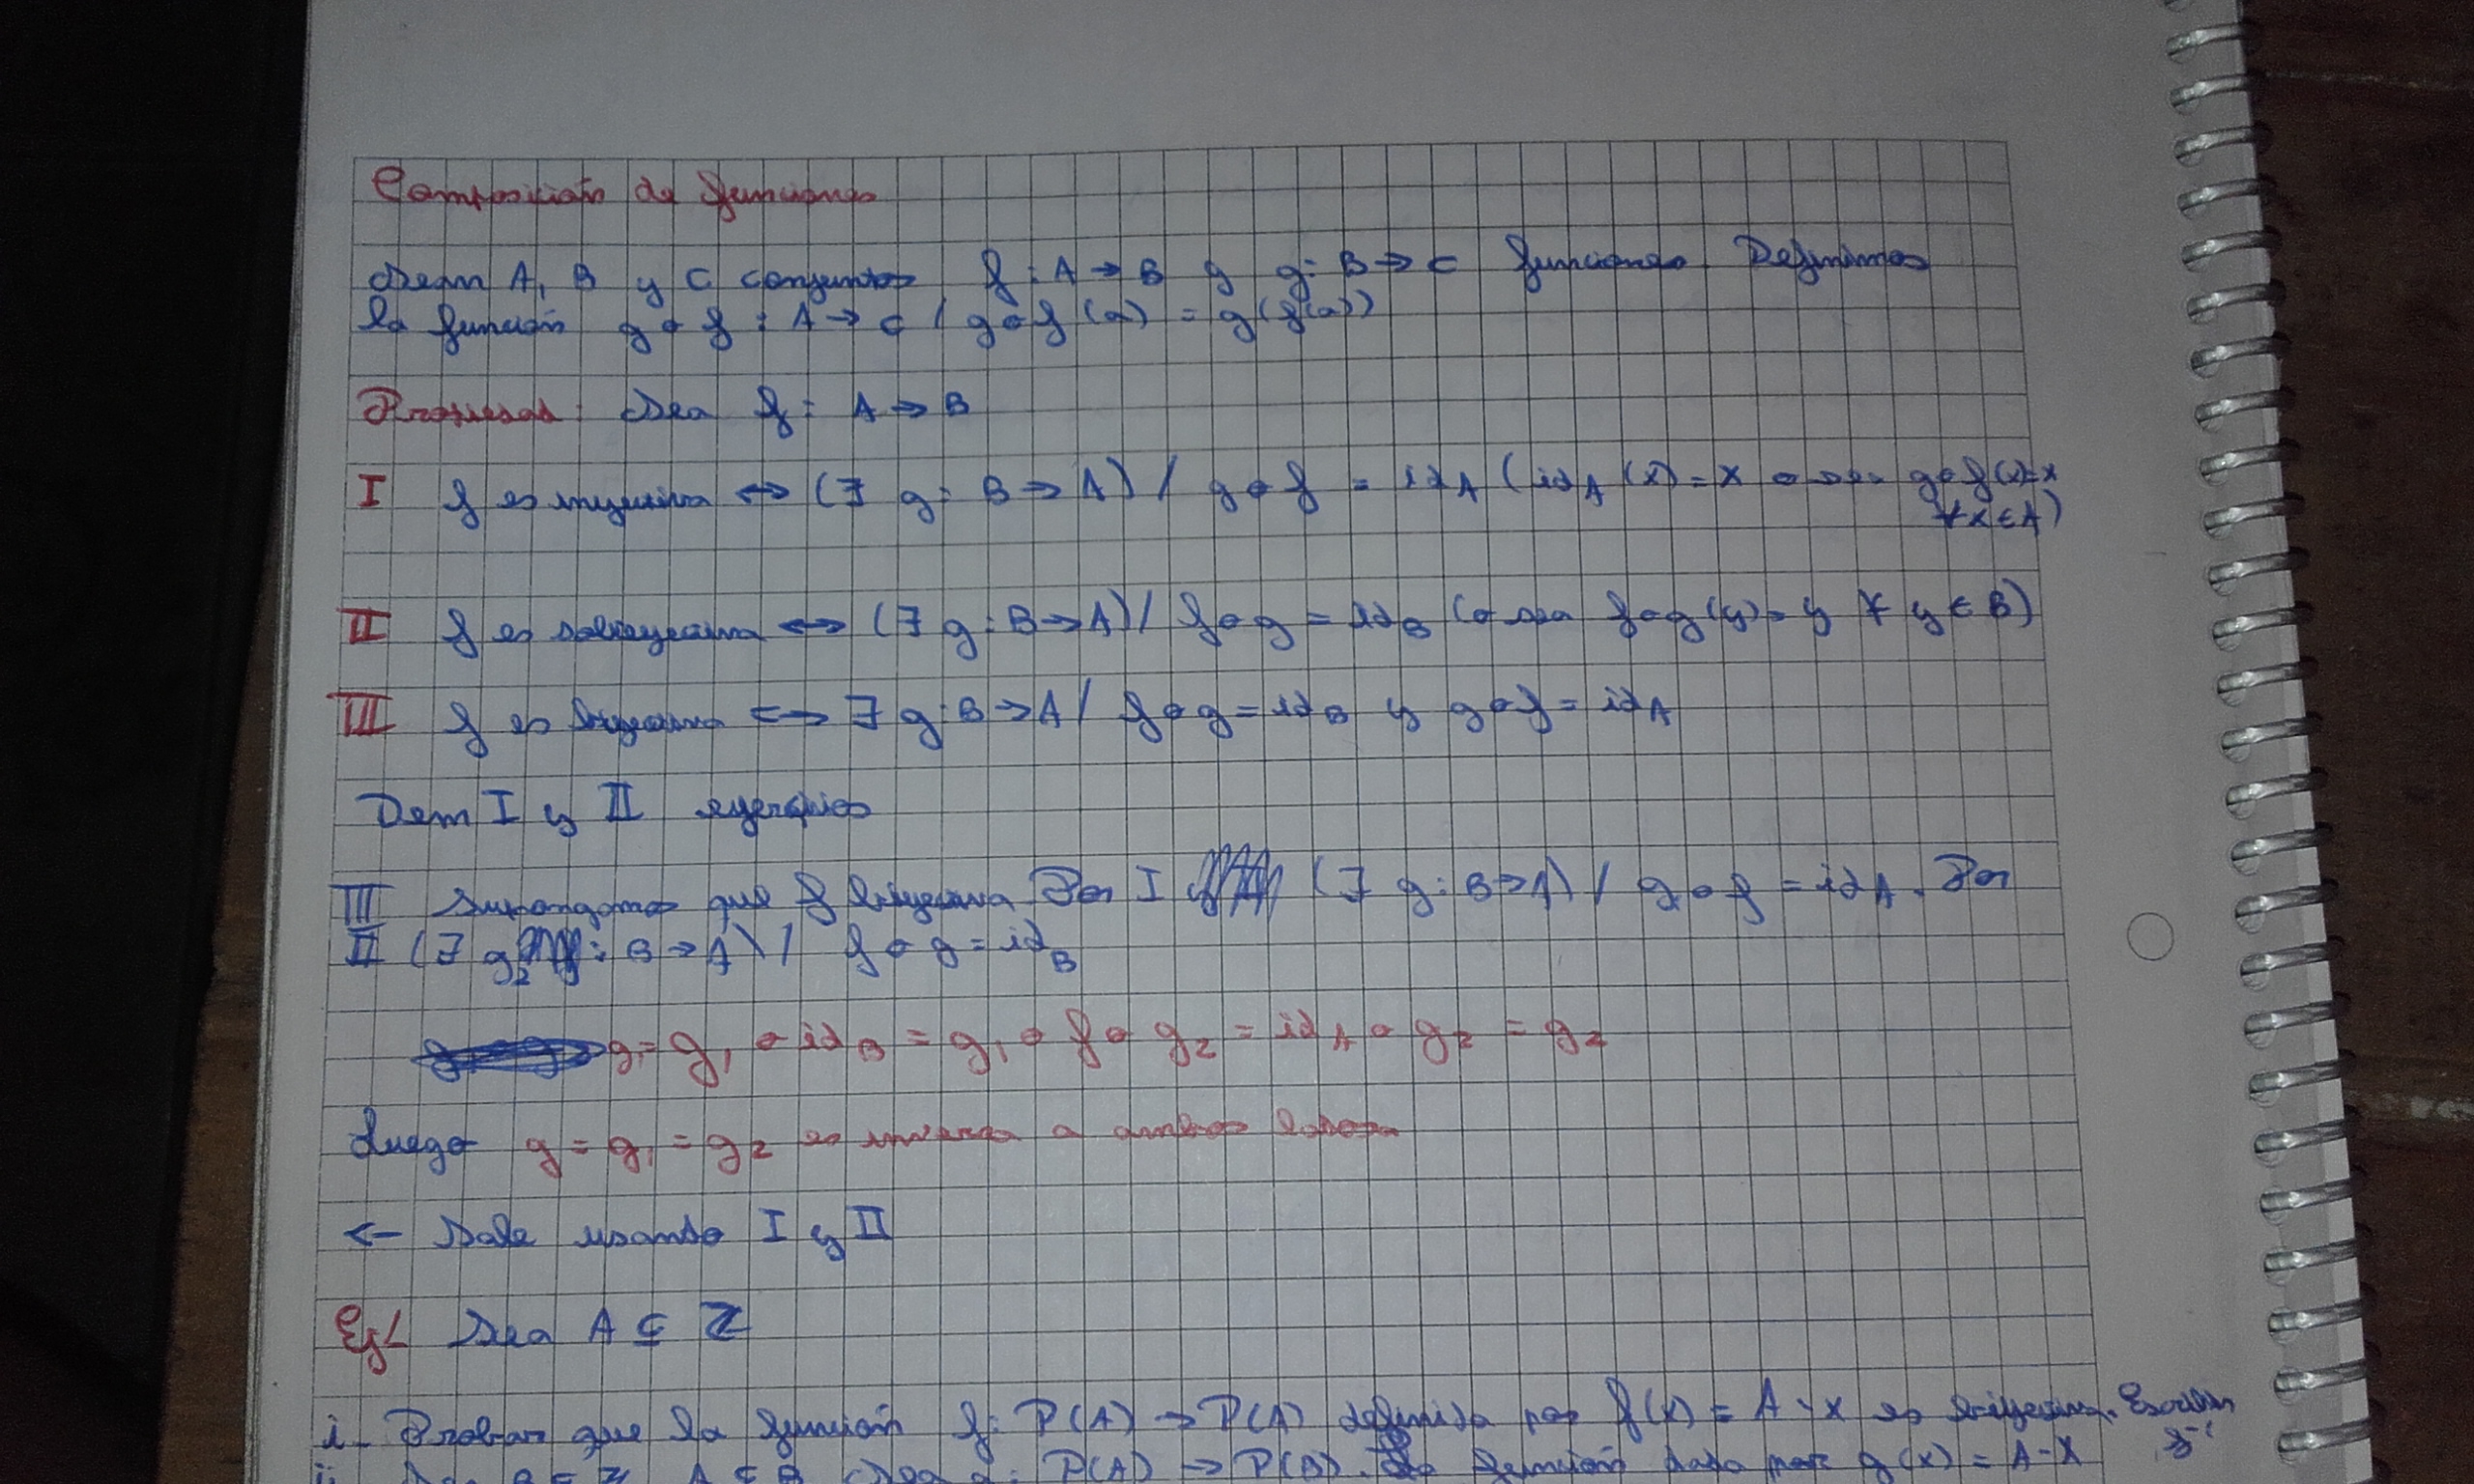 Composición de funciones
Sean A, B y C conjuntos f: A → B y g: B → C funciones. Definimos
la función g∘f : A → C / g∘f (a) = g(f(a))
Sea f: A → B
I f es inyectiva ↔ (∃ g: B → A) / g∘f = id_A (id_A (x) = x o sea g∘f(x)=x
∀ x ∈ A)
II f es sobreyectiva ↔ (∃ g: B → A) / f∘g = id_B (o sea f∘g(y) = y ∀ y ∈ B)
III f es biyectiva ↔ ∃ g: B → A / f∘g = id_B y g∘f = id_A
Dem I y II ejercicios
III Supongamos que f biyectiva Por I (∃ g: B → A) / g∘f = id_A. Por
II (∃ g₂ : B → A) / f∘g = id_B
g₁ = g₁ ∘ id_B = g₁ ∘ f ∘ g₂ = id_A ∘ g₂ = g₂
Luego g = g₁ = g₂ es inversa a ambos lados
← Sale usando I y II
Ej Sea A ⊆ Z
i- Probar que la función f: P(A) → P(A) definida por f(x) = A - X es biyectiva. Escribir
f⁻¹
B ⊆ Z, A ⊆ B Sea g: P(A) → P(B). La función dada por g(x) = A - X